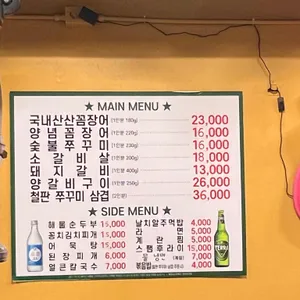 ★ MAIN MENU ★
국내산산꼼장어 (1인분 180g) 23,000
양념꼼장어 (1인분 220g) 16,000
숯불쭈꾸미 (1인분 230g) 16,000
소갈비살 (1인분 200g) 18,000
돼지갈비 (1인분 400g) 13,000
양갈비구이 (1인분 250g) 26,000
철판 쭈꾸미 삼겹 (2인분) 36,000
★ SIDE MENU ★
해물순두부 15,000 날치알주먹밥 4,000
꼼치김치찌개 15,000 라면 5,000
어묵탕 15,000 계란찜 5,000
된장찌개 6,000 스팸후라이 15,000
얼큰칼국수 7,000 물냉면 (계절) 7,000
볶음밥 4,000
TERRA